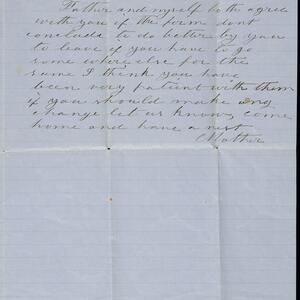 Father and myself both agree
with you if the firm dont
conclude to do better by you
to leave if you have to go
some where else for the
same I think you have
been very patient with them
if you should make any
change let us know, come
home and have a rest
Mother